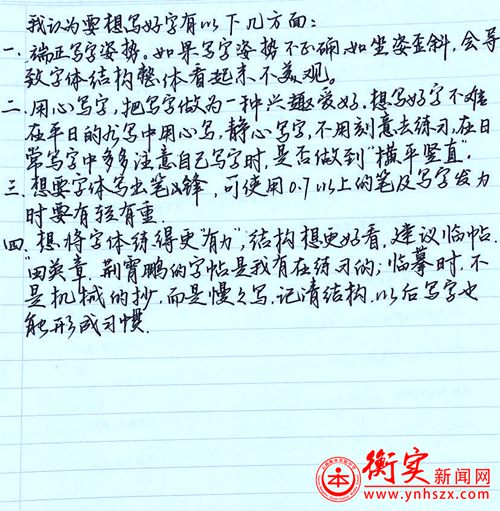 我认为要想写好字有以下几方面：
一、端正写字姿势。如果写字姿势不正确，如坐姿歪斜，会导
致字体结构整体看起来不美观。
二、用心写字，把写字做为一种兴趣爱好。想写好字不难
在平日的书写中用心写，静心写字，不用刻意去练习，在日
常写字中多多注意自己写字时，是否做到“横平竖直”。
三、想要字体写出笔锋，可使用0.7以上的笔及写字发力
时要有弦有重.
四、想将字体练得更“有力”，结构想更好看，建议临帖.
田英章.荆霄鹏的字帖是我有在练习的；临摹时.不
是机械的抄.而是慢々写.记清结构.以后写字也
能形成习惯.
衡实新闻网
www.ynhszx.com